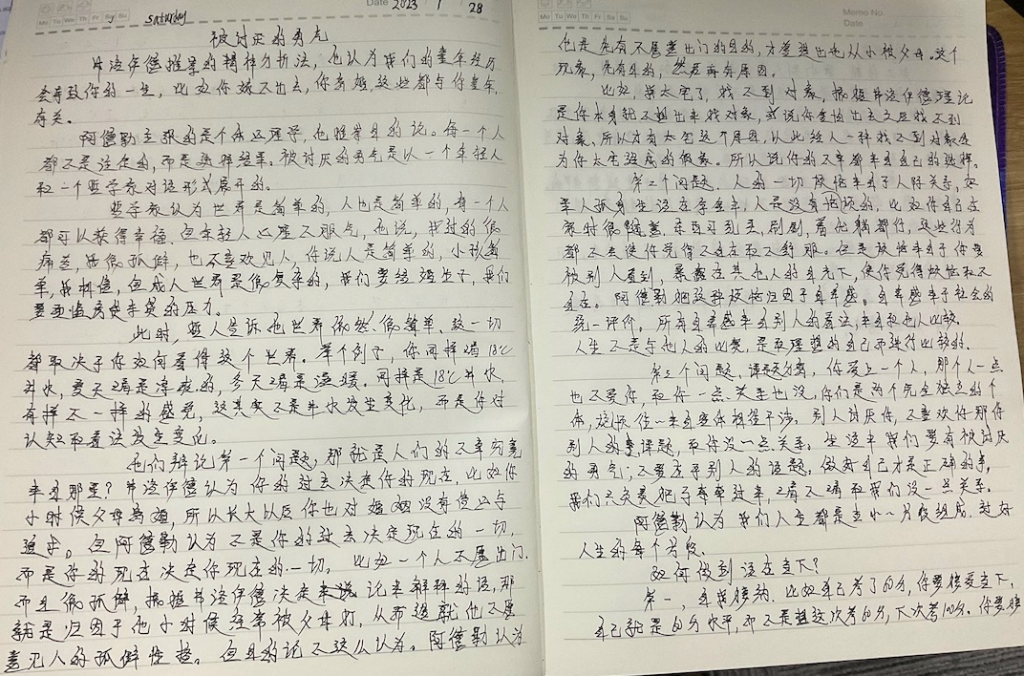 Mo Tu We Th Fr Sa Su
saturday
Date 2023 / 1 / 28
被讨厌的勇气
弗洛伊德推崇的精神分析法,他认为我们的童年经历
会导致你的一生,比如你嫁不出去,你离婚,这些都与你童年
有关。
阿德勒主张的是个体心理学,他推崇目的论。每一个人
都不是注定的,而是选择结果。被讨厌的勇气是以一个年轻人
和一个哲学家对话形式展开的。
哲学家认为世界是简单的,人也是简单的,每一个人
都可以获得幸福,但年轻人心里不服气,他说,我过的很
痛苦,也很孤僻,也不喜欢见人,你说人是简单的,小孩简
单,我相信,但成人世界是很复杂的,我们要结婚生子,我们
要面临房贷车贷的压力。
此时,哲人告诉他世界依然很简单,这一切
都取决于你如何看待这个世界。举个例子,你同样喝18℃
井水,夏天喝是凉爽的,冬天喝是温暖。同样是18℃井水,
有样不一样的感觉,这其实不是井水发生变化,而是你对
认知和看法发生变化。
他们辩论第一个问题,那就是人们的不幸究竟
来自那里?弗洛伊德认为你的过去决定你的现在,比如你
小时侯父母离婚,所以长大以后你也对婚姻没有
。但阿德勒认为不是你的过去决定现在的一切,
而是你的现在决定你现在的一切。比如一个人不愿出门,
而且很孤僻,根据弗洛伊德决定论来解释的话,那
就是归因于他小时侯经常被父母打,从而造就他不愿
意见人的孤僻性格。但目的论不这么认为。阿德勒认为
Mo Tu We Th Fr Sa Su
Memo No.
Date
他是先有不愿意出门的目的,才会造出他从小被父母 这个
现象,先有目的,然后再有原因。
比如,你太宅了,找不到对象,根据弗洛伊德理论
是你本身就不想出来找对象,或说你害怕出去又且找不到
对象,所以才有太宅这个原因,以此给人一种找不到对象是
为你太宅造成的假象。所以说你的不幸都来自自己的选择。
第二个问题,人的一切烦恼来于人际关系,如
果人孤身生活在宇宙里,人是没有烦恼的,比如你自己在
家时很随意,东西可乱丢,刷剧,看电视都行,这些行为
都不会使你觉得不自在和不舒服。但是烦恼来于你要
被别人看到,暴露在其他人的目光下,使你觉得烦恼和不
自在。阿德勒把这种烦恼归因于自卑感。自卑感来于社会的
统一评价,所有自卑感来自别人的看法,来自和他人比较。
人生不是与他人的比赛,是和理想的自己而进行比较的。
第三个问题,课题分离,你爱上一个人,那个人一点
也不爱你,和你一点关系也没,你们是两个完全独立的个
体,烦恼往一来自互体相互干涉。别人讨厌你,不喜欢你那你
别人的事,课题,和你没一点关系。生活中我们要有被讨厌
的勇气;不要在乎别人的话题,做好自己才是正确的事,
我们只负责把马牵到这里,喝不喝和我们没一点关系。
阿德勒认为我们人生都是由小一片段组成,过好
人生的每个片段。
如何做到活在当下?
第一,自我接纳,比如自己考了60分,你要接受当下,
自己就是60分水平,而不是想这次考60分,下次考100分。你要接